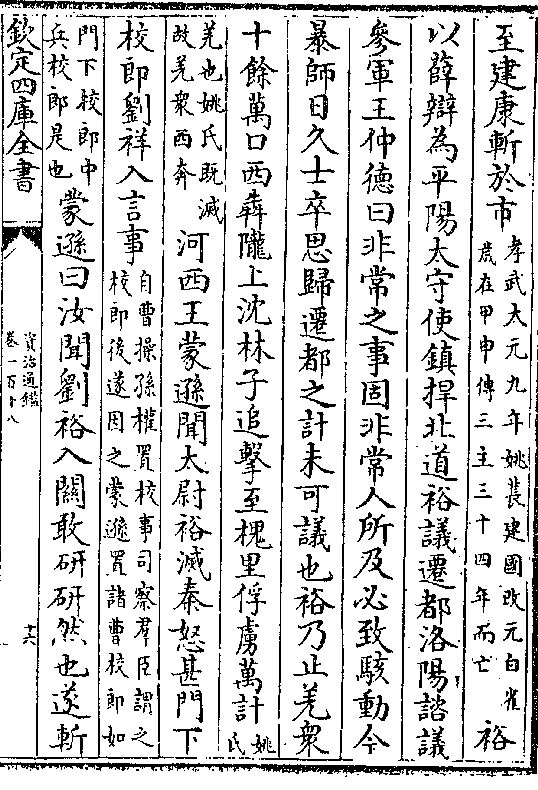 至建康斬於市孝武太元九年姚萇建國改元白雀歲在甲申傳三主三十四年而亡裕
以薛辯為平陽太守使鎮捍北道裕議遷都洛陽諮議
參軍王仲德曰非常之事固非常人所及必致駭動今
暴師日久士卒思歸遷都之計未可議也裕乃止羌衆
十餘萬口西奔隴上沈林子追擊至槐里俘虜萬計姚氏
羌也姚氏既滅故羌衆西奔河西王蒙遜聞太尉裕滅秦怒甚門下
校郎劉祥入言事自曹操孫權置校事司察羣臣謂之校郎後遂因之蒙遜置諸曹校郎如
門下校郎中兵校郎是也蒙遜曰汝聞劉裕入關敢研研然也遂斬
欽定四庫全書
資治通鑑
卷一百十八
十六